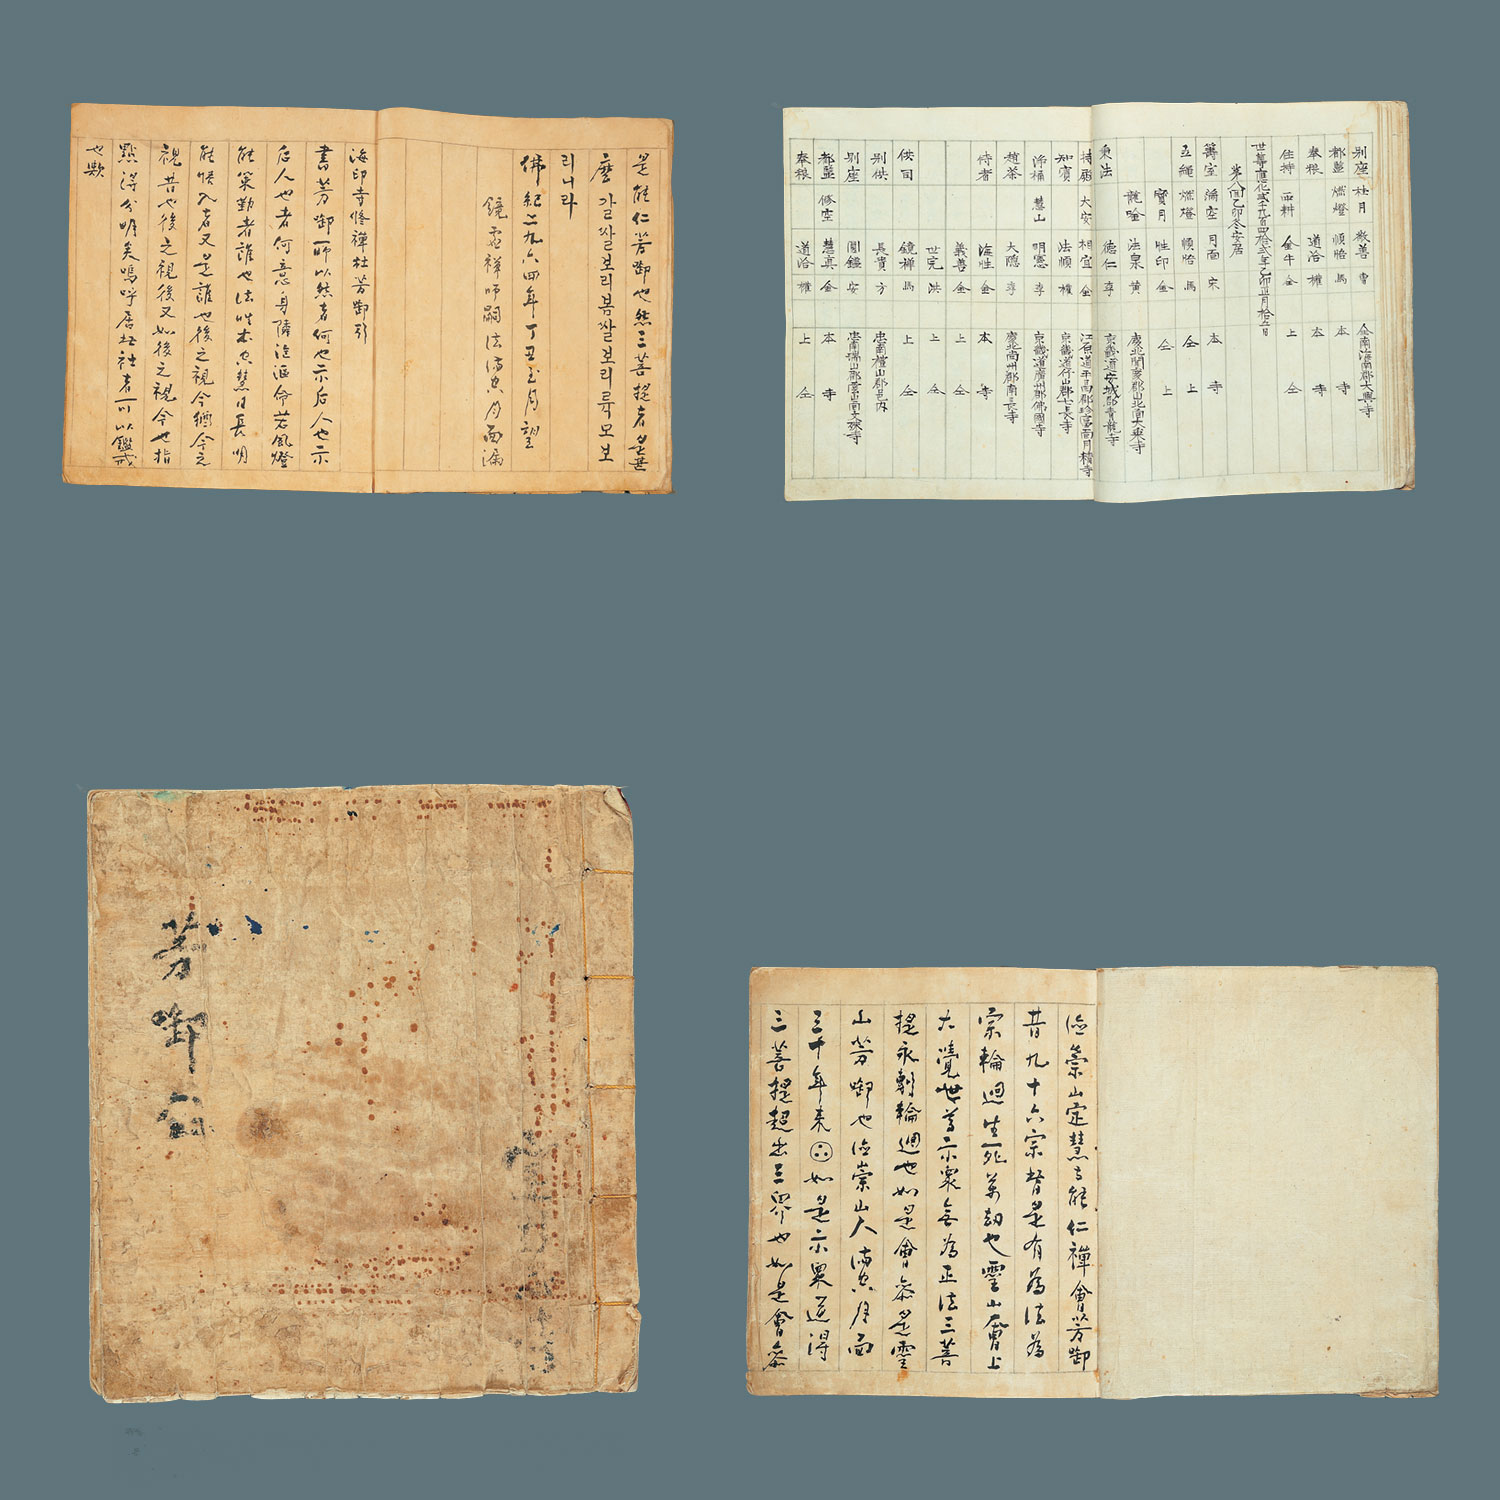 是能仁芳啣也然三菩提者是甚
麽갈쌀보리봄쌀보리류모보
리니라
佛紀二九六四年丁丑至月望
鏡虛禪師嗣法滿空月面漏
海印寺修禪社芳啣引
書芳啣所以然者何也示后人也示
后人也者何意身隨流漚命若風燈
能策勤者誰也法性本空慧日長明
能悟入者又是誰也後之視今猶今之
視昔也後之視後又如後之視今也指
點得分明矣嗚呼居于社者可以鑑戒
也歟
別座 杜月 敬善 曹 全南海南郡大興寺
都監 燃燈 順悟 馬 本寺
奉粮 道洽 權 本寺
住持 西耕 金牛 金 上仝
世尊應化貳千九百四拾貳年乙卯正月拾五日
第八回乙卯冬安居
籌室 滿空 月面 宋 本寺
立繩 燃燈 順悟 馬 仝上
寶月 性印 金 仝上
龍吟 法泉 黃 慶北聞慶郡山北面大乘寺
秉法 德仁 李 京畿道安城郡靑龍寺
持殿 大安 相宜 金 江原道平昌郡珍富面月精寺
知賓 法順 權 京畿道竹山郡七長寺
淨桶 慧山 明憲 李 京畿道廣州郡佛國寺
趙茶 大隱 李 慶北尙州郡南長寺
侍者 海性 金 本寺
義善 金 上仝
世完 洪 上仝
供司 鏡禪 馬 上仝
別供 長貴 方 忠南禮山郡邑內
別座 圓鑑 安 忠南瑞山郡雲山面文殊寺
都監 修空 慧眞 金 本寺
奉粮 道洽 權 上仝
芳啣錄
德崇山定慧寺能仁禪會芳啣
昔九十六宗督是有爲法爲
宗輪廻生死萬劫也靈山會上
大覺世尊示衆無爲正法三菩
提永斷輪廻也如是會參是靈
山芳啣也德崇山人滿空月面
三千年來如是示衆逆得
三菩提超出三界也如是會參